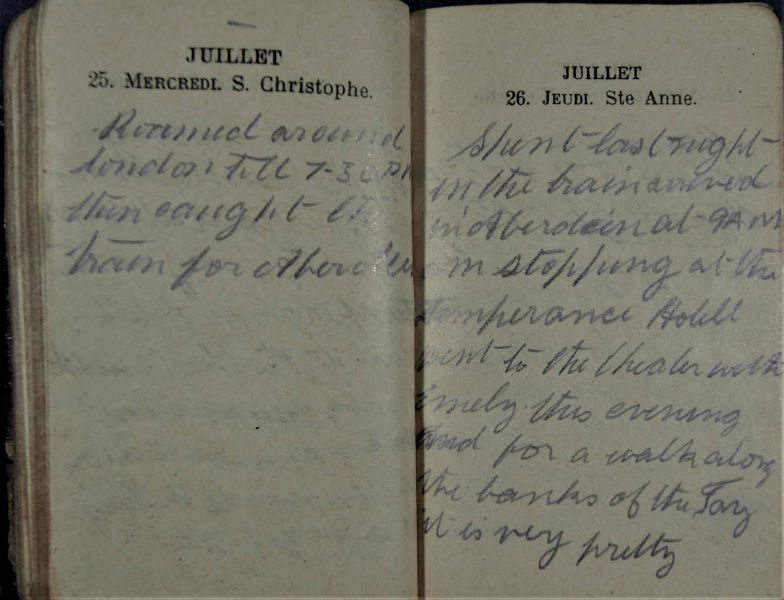 JUILLET
25. MERCREDI. S. Christophe.
Roamed around
london till 7-30 PM
then caught the
train for Aberdeen
JUILLET
26. JEUDI. Ste Anne.
Spent last night
in the train arrived
in Aberdein at 9AM
am stopping at the
Temperance Hotell
went to the theater with
this evening
and for a walk along
the banks of the Tay
it is very pretty